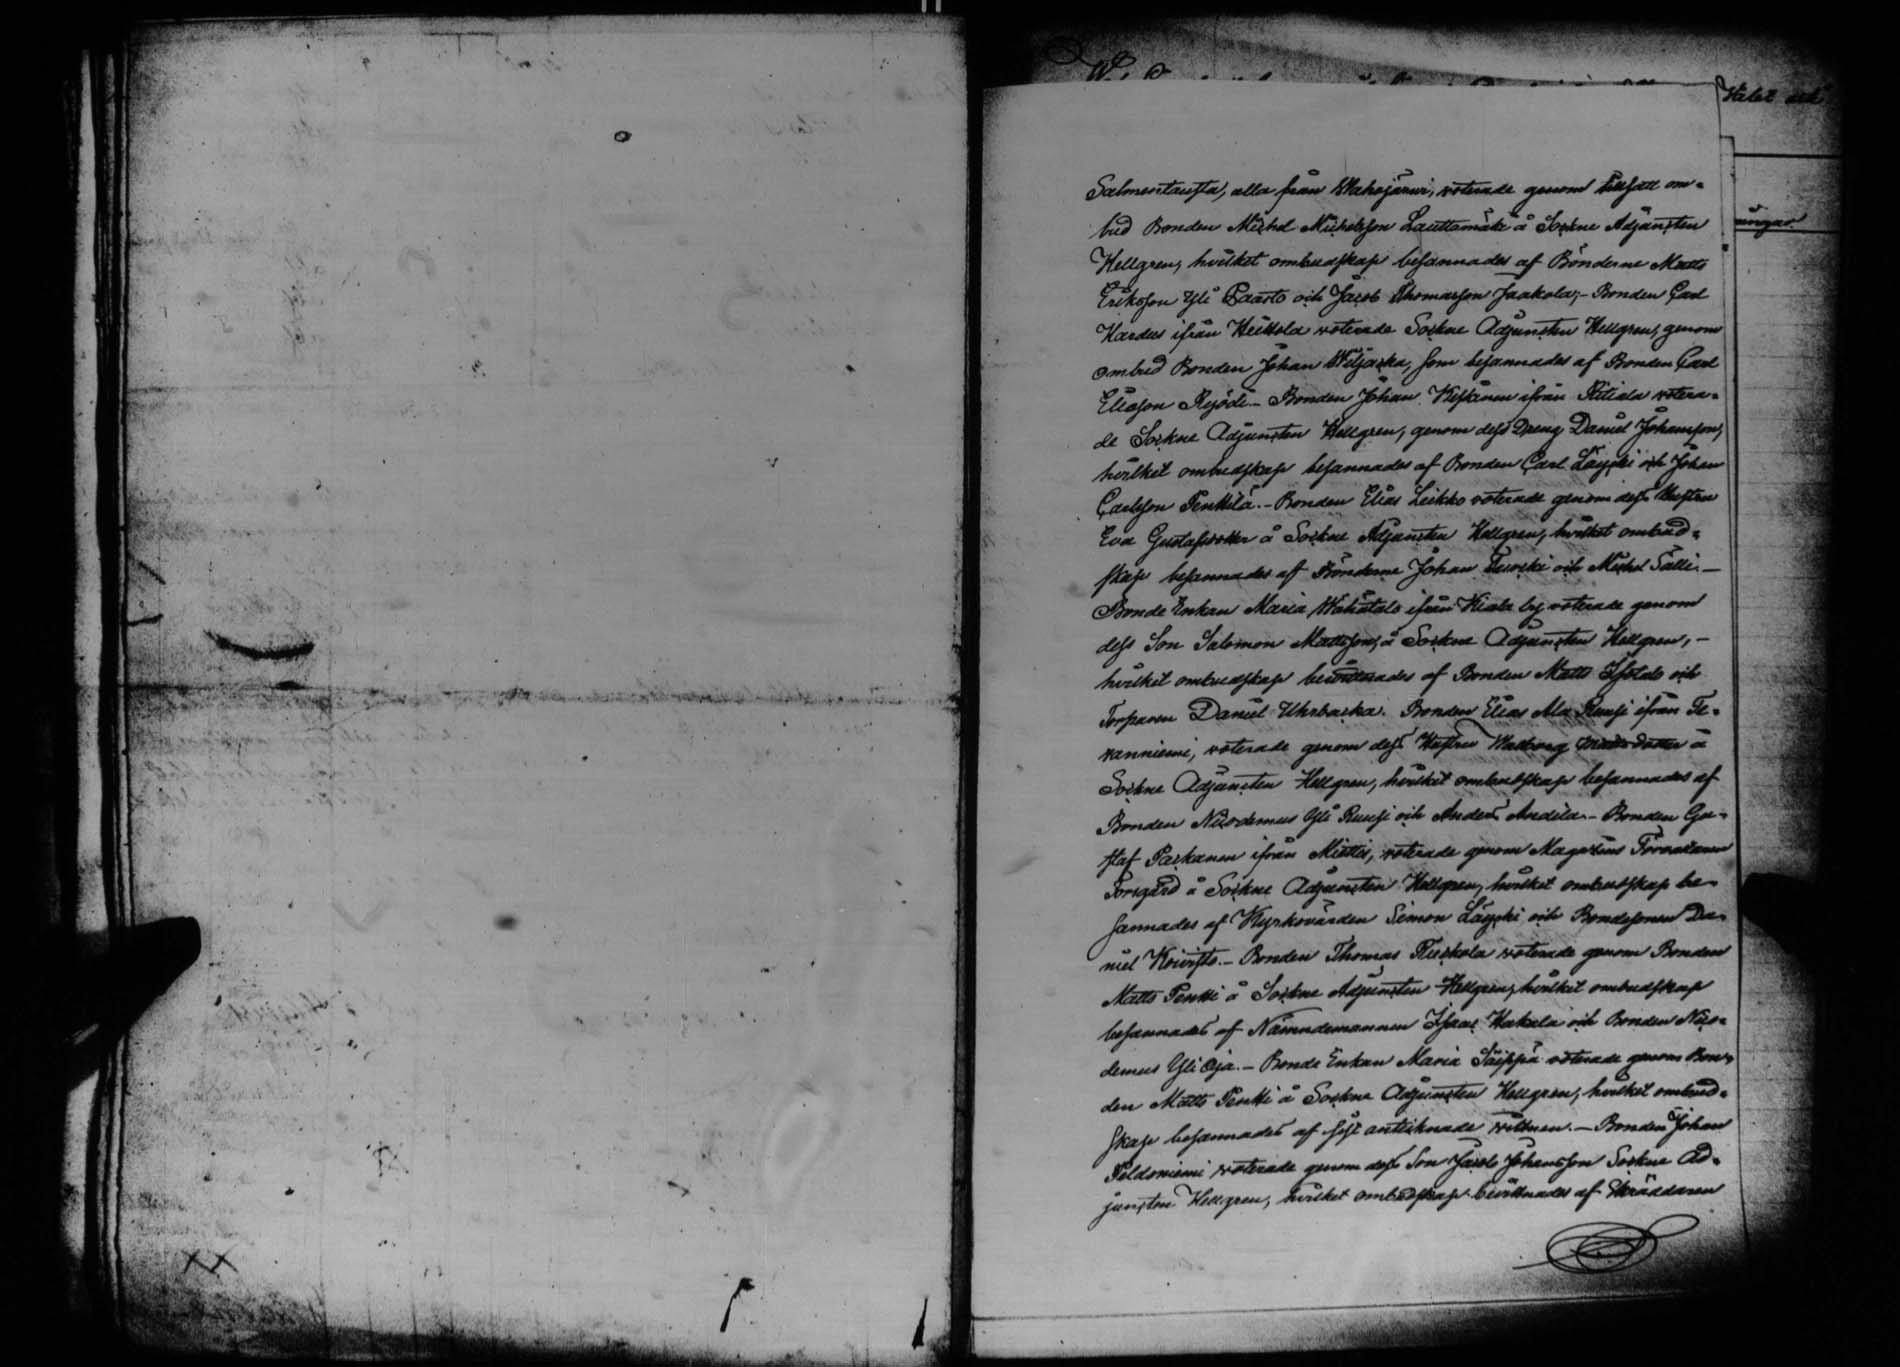 Salmentausta, alla från Wahojärwi, voterade genom tillsatt om-
bud Bonden Michel Michelsson Lauttamäki å Sockne Adjuncten
Hellgren, hvilket ombudskap besannades af Bönderne Matts
Eriksson Yli Paavo och Jacob Thomasson Jaakola; - Bonden Carl
Kardus ifrån Heikkola voterade Sockne Adjuncten Hellgren, genom
ombud Bonden Johan Wiljacka, som besannades af Bonden Carl
Eliasson - Bonden Johan ifrån Kitiala votera-
de Sockne Adjuncten Hellgren, genom dess Dreng Daniel Johansson,
hvilket ombudskap besannades af Bonden Carl Läyski och Johan
Carlsson Penttilä. - Bonden Elias Leikko voterade genom dess Hustru
Eva Gustafsdotter å Sockne Adjuncten Hellgren, hvilket ombud-
skap besannades af Bönderne Johan och Michel Salli. -
Bonde Enkan Maria Wahatalo ifrån by voterade genom
dess Son Salomon Mattsson, å Sockne Adjuncten Hellgren, -
hvilket ombudskap bevittnades af Bonden Matts Isotalo och
Torparen Daniel Uhrbacka. Bonden Elias Ala Ruusi ifrån Te-
vanniemi, voterade genom dess Hustru Walborg å
Sockne Adjuncten Hellgren, hvilket ombudskap besannades af
Bonden Nicodemus Yli Ruusi och Anders Andila. - Bonden Gu-
staf Parkanen ifrån Miettis, voterade genom Magazins Förvaltaren
Forsgård å Sockne Adjuncten Hellgren, hvilket ombudskap be-
sannades af Kyrkovärden Simon Läyski och Bondesonen Da-
niel Koivisto. - Bonden Thomas Ruskola voterade genom Bonden
Matts Pentti å Sockne Adjuncten Hellgren, hvilket ombudskap
besannades af Nämndemannen Isaac Hakala och Bonden Nico-
demus Yli Oja. - Bonde Enkan Maria Säippä voterade genom Bon-
den Matts Pentti å Sockne Adjuncten Hellgren, hvilket ombud-
skap besannades af sist antecknade vittnen. - Bonden Johan
Peldoniemi voterade genom dess Son Jacob Johansson Sockne Ad-
juncten Hellgren, hvilket ombudskap bevittnades af Skräddaren